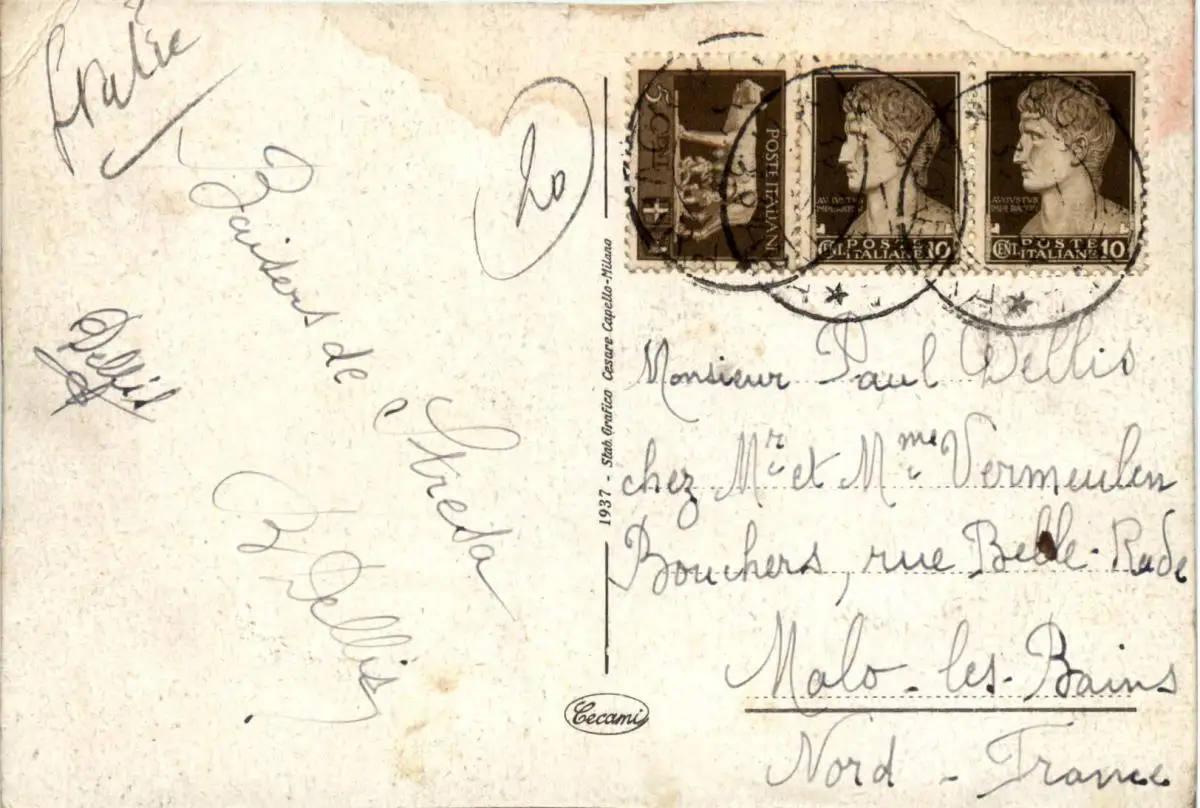 Italie
Baisers de
Stresa
B Dellis
Dellis
20
1937 - Stab. Grafico Cesare Capello-Milano
Cecami
5 CENT.
POSTE ITALIANE
AVGVSTVS
IMPERATOR
CENT. POSTE ITALIANE 10
AVGVSTVS
IMPERATOR
CENT. POSTE ITALIANE 10
Monsieur Paul Dellis
chez Mr et Mme Vermeulen
Bouchers, rue Belle-Rade
Malo-les-Bains
Nord - France